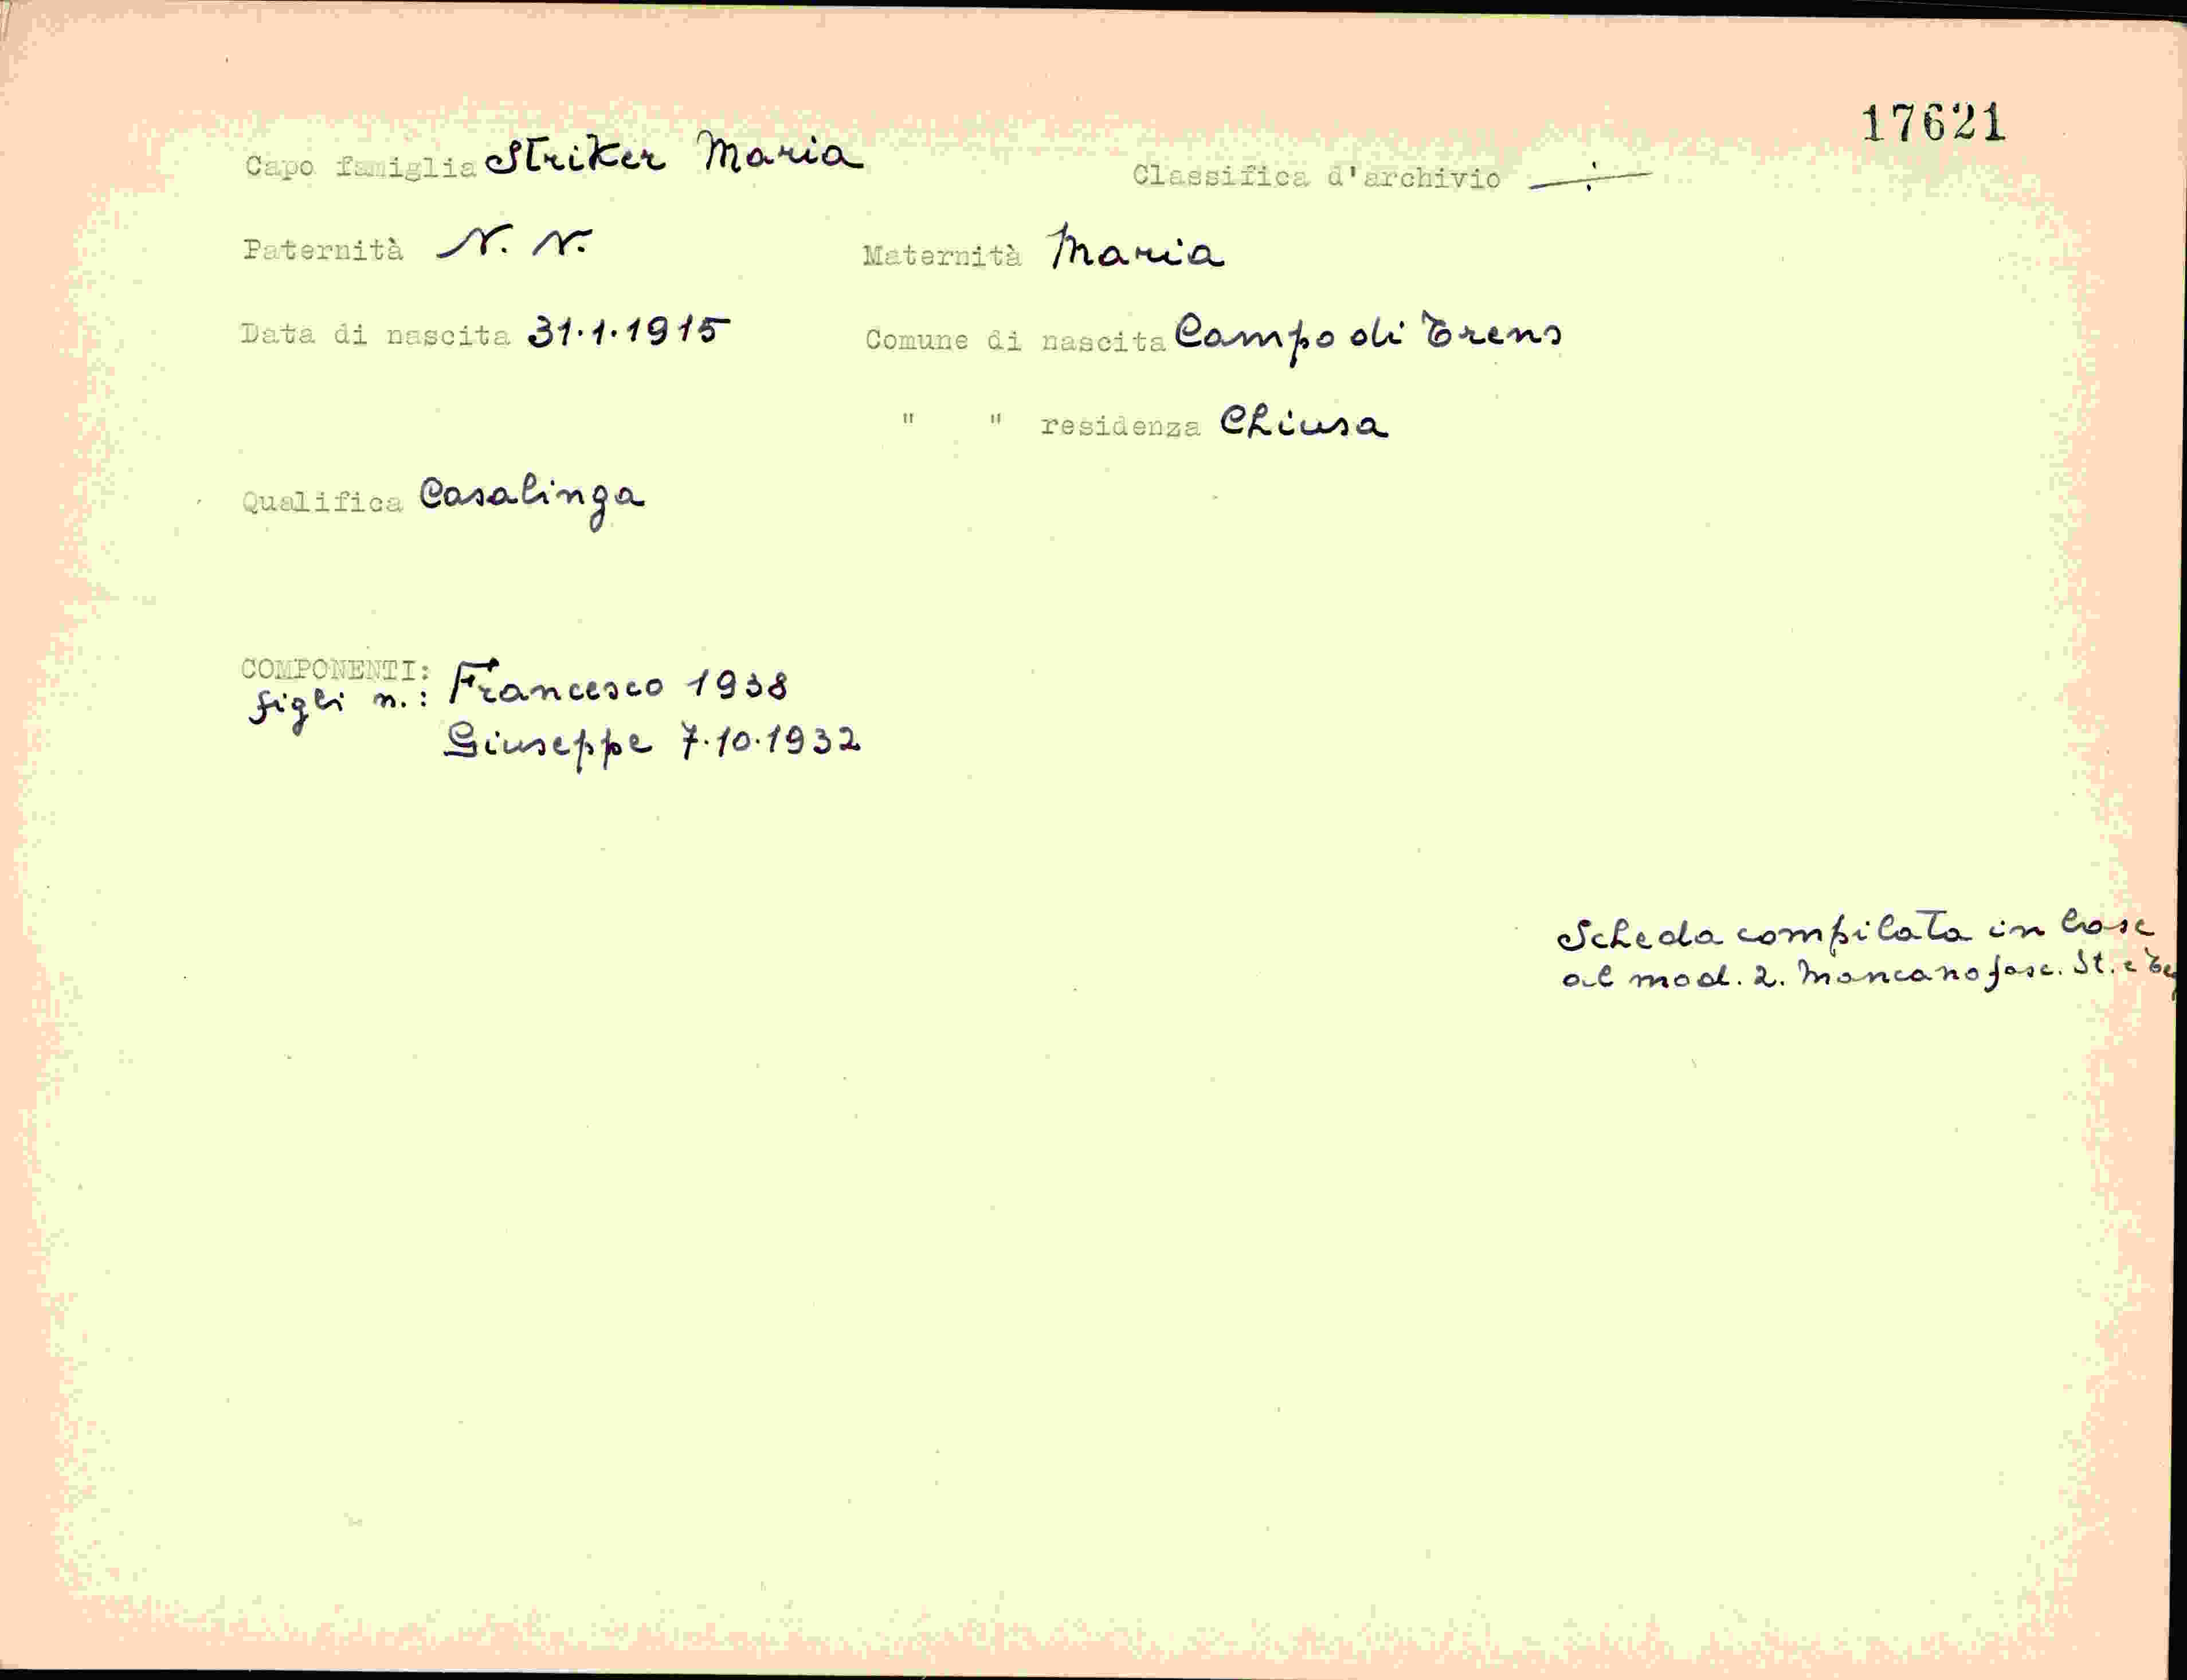 17621
Capo famiglia Striker Maria Classifica d'archivio
Paternità N. N. Maternità Maria
Data di nascita 31.1.1915 Comune di nascita Campo di Trens
" " residenza Chiusa
Qualifica Casalinga
COMPONENTI:
figli n.: Francesco 1938
Giuseppe 7.10.1932
Scheda compilata in base
al mod. 2. Mancano fasc. St. e